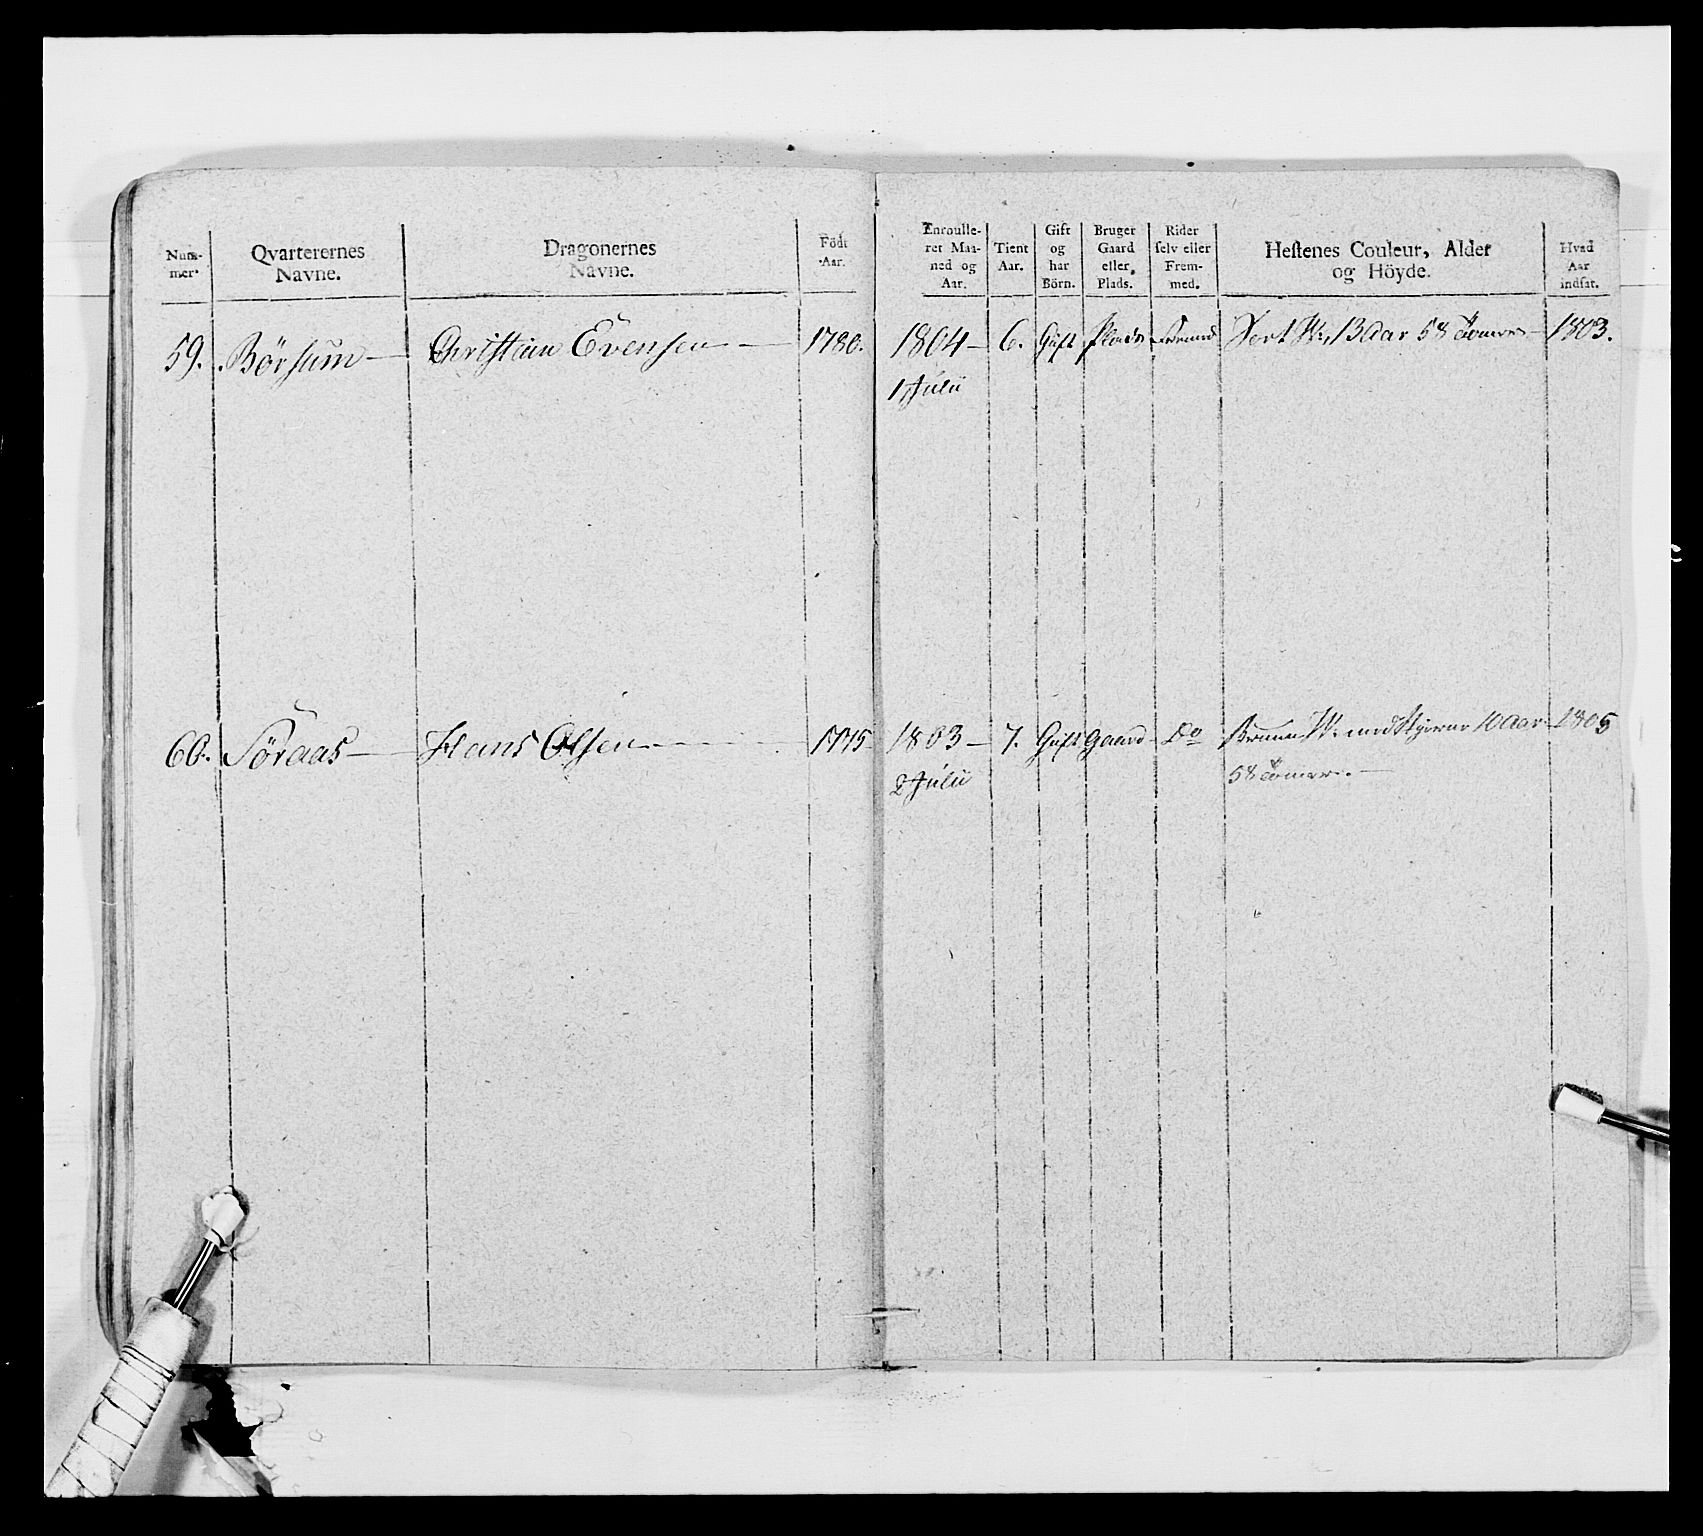 Num-
mer.
Qvarterernes
Navne.
Dragonernes
Navne.
Födt
Aar.
Enroulle-
ret Maa-
ned og
Aar.
Tient
Aar.
Gift
og
har
Börn.
Bruger
Gaard
eller
Plads.
Rider
selv eller
Frem-
med.
Hestenes Couleur, Alder
og Höyde.
Hvad
Aar
indsat.
59. Börsum — Christian Evensen — 1780. 1804 — 6. Gift Plads Fremd Sort W. 13 aar 58 Tomer — 1803.
1 Julii
60. Söraas — Hans Olsen — 1775 1803 — 7. Gift Gaard Do W. med Stjerne 10 Aar 1805
2 Julii 58 Tomer. —